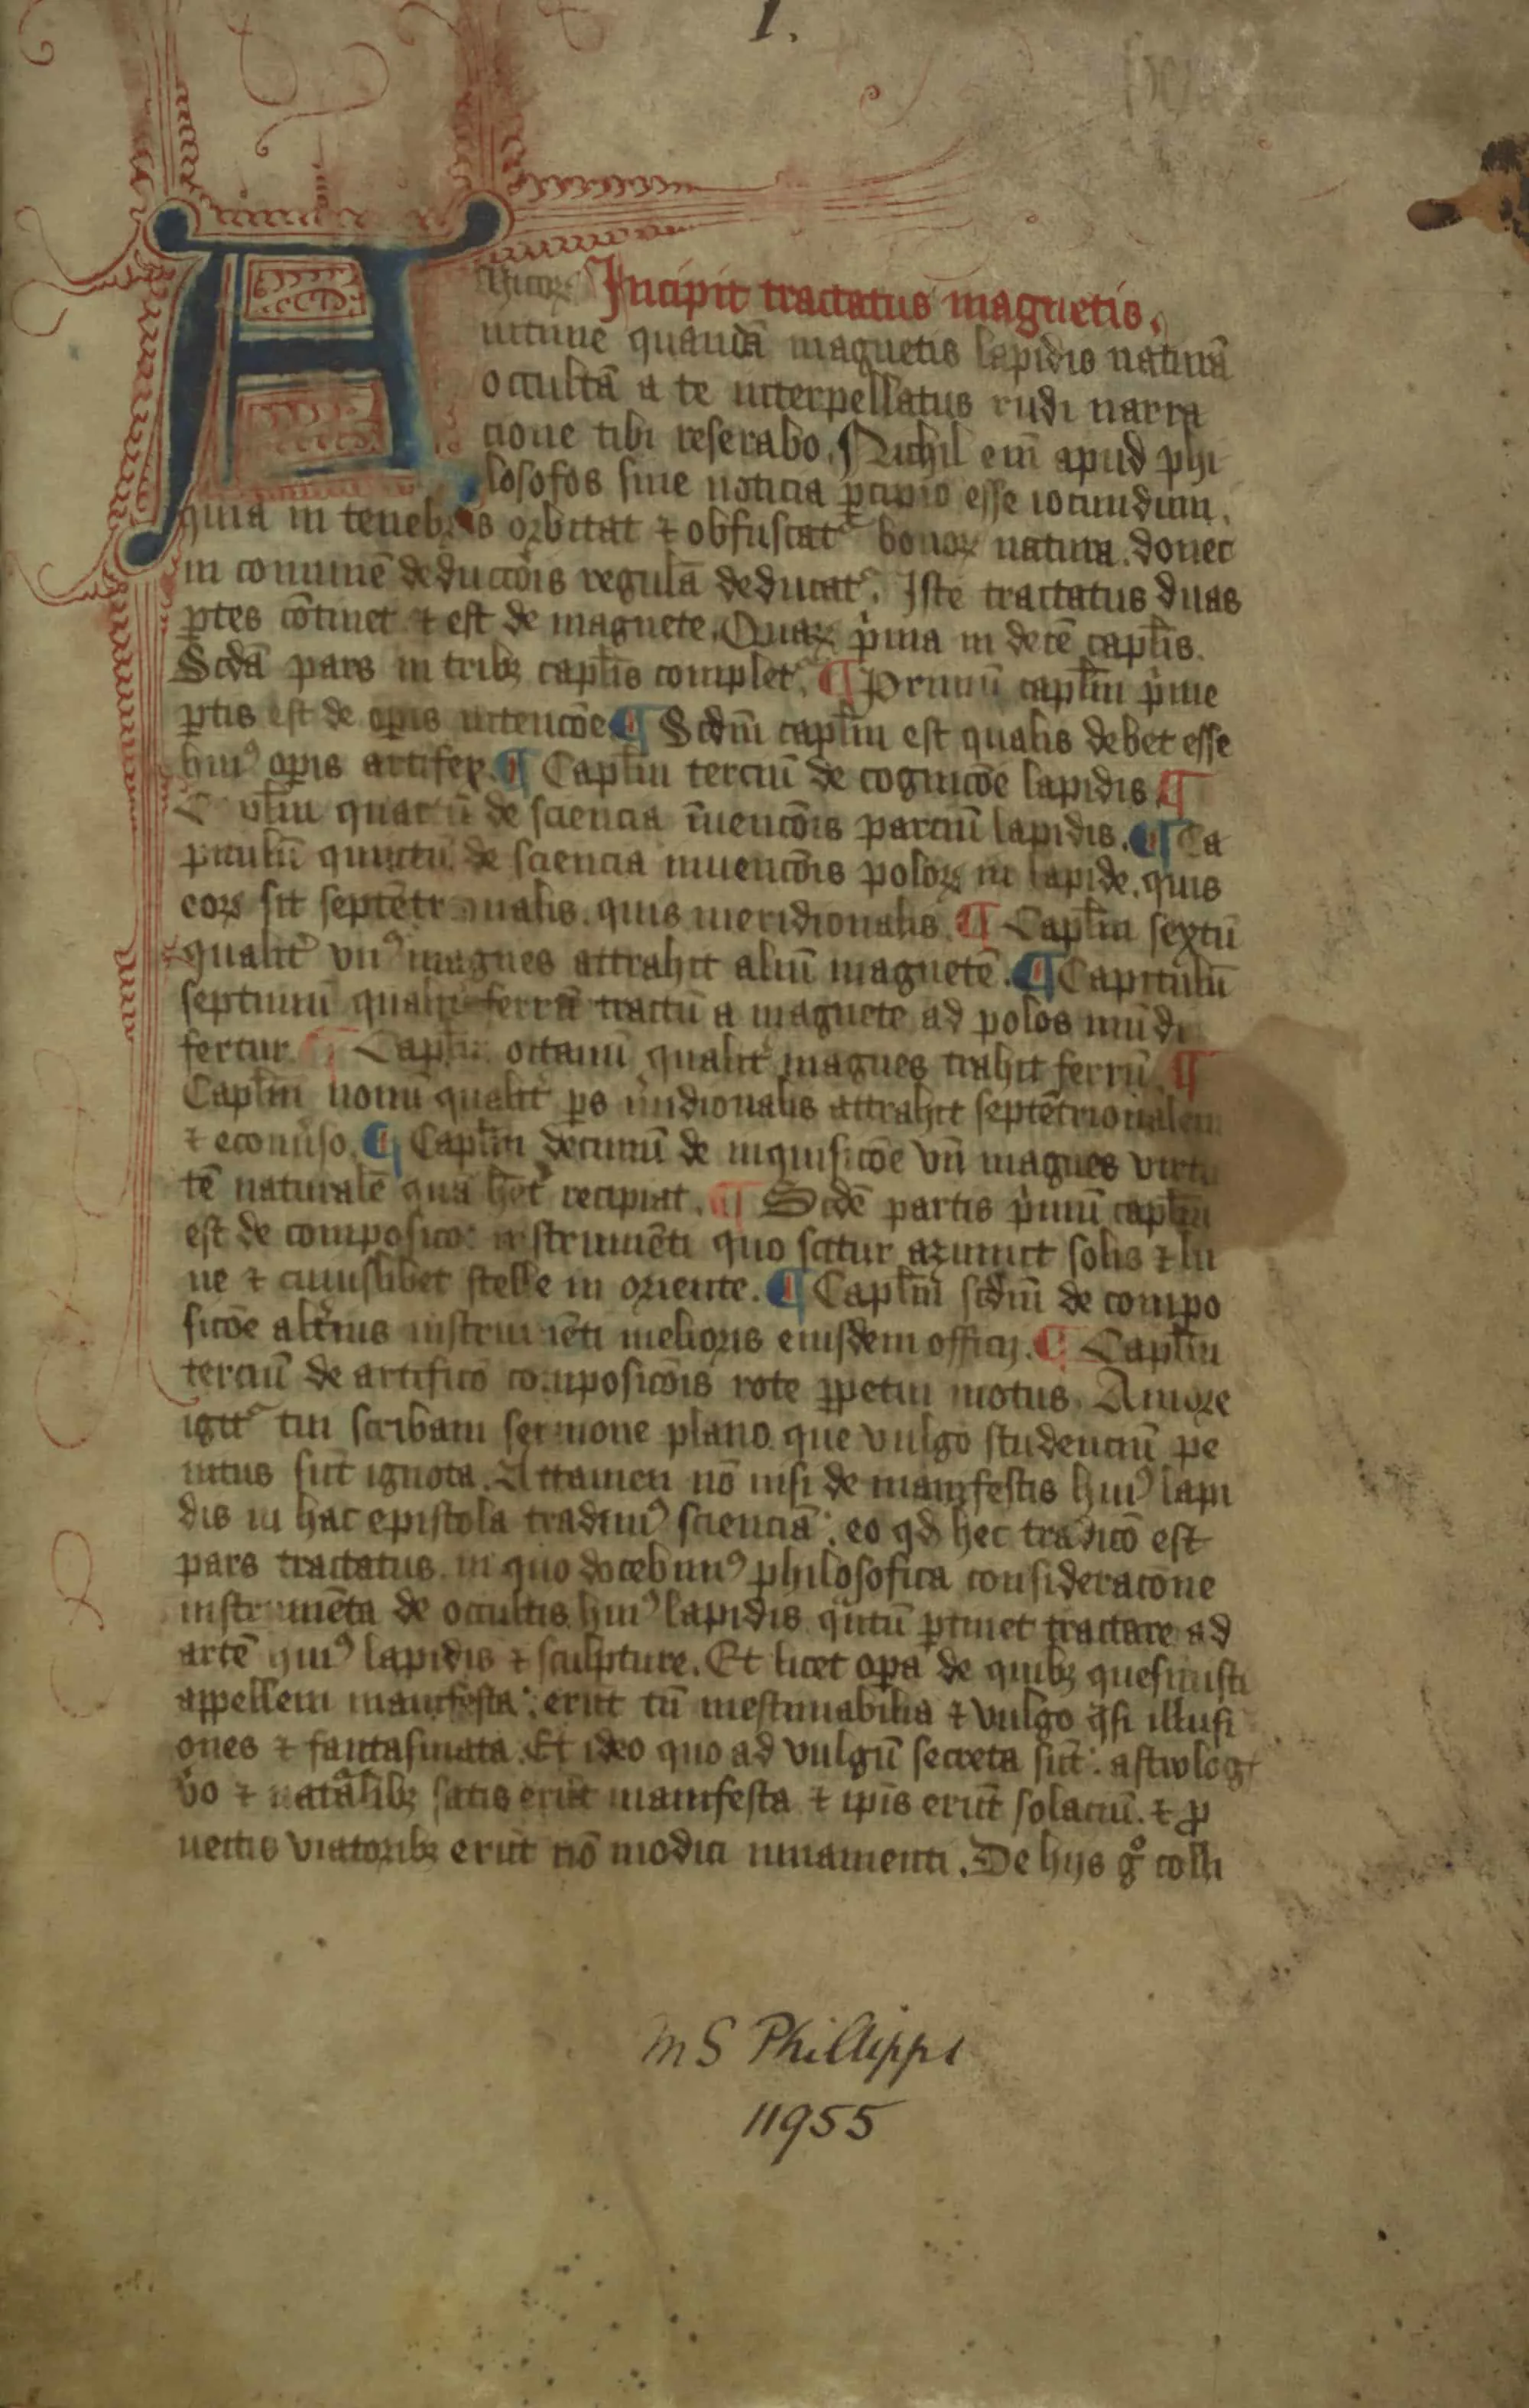 1.
Amicorum Incipit tractatus magnetis.
intime quandā magnetis lapidis naturā
occultā a te interpellatus rudi narra
cione tibi reserabo. Nichil eni̅ apud phi
losofos sine noticia ꝑcipio esse iocundum.
quia in tenebris orbitat ⁊ obfuscat᷑ bonoꝝ natura. donec
in comune̅ deducco̅is regulā deducat᷑. Iste tractatus duas
ꝑtes co̅tinet ⁊ est de magnete. Quaꝝ pͥma in dece̅ capl̅is.
Scdā pars in tribꝫ capl̅is complet᷑. ¶ Primu̅ capl̅m pͥme
ꝑtis est de oꝑis intenco̅e ¶ Scdm̅ capl̅m est qualis debet esse
huiꝰ oꝑis artifex. ¶ Capl̅m terciu̅ de cognico̅e lapidis ¶
quartu̅ de sciencia i̅uenco̅is parciu̅ lapidis. ¶ Ca
pitulu̅ quintu̅ de sciencia inuenco̅is poloꝝ in lapide. quis
eoꝝ sit septe̅trionalis. quis meridionalis. ¶ Capl̅m sextu̅
qualit̕ vnꝰ magnes attrahit aliu̅ magnete̅. ¶ Capitulu̅
septimu̅ qualit̕ ferru̅ tactu̅ a magnete ad polos mu̅di
fertur ¶ Capl̅m octauu̅ qualit̕ magnes trahit ferru̅. ¶
Capl̅m nonu̅ qualit̕ ꝑs m̕idionalis attrahit septe̅trionalem
⁊ econu̕so. ¶ Capl̅m decimu̅ de inquisico̅e vn̅ magnes virtu
te̅ naturale̅ quā h̅et recipiat. ¶ Scde̅ partis pͥmu̅ capl̅m
est de composico̅e instrume̅ti quo scitur azimut solis ⁊ lu
ne ⁊ cuiuslibet stelle in oriente. ¶ Capl̅m scdm̅ de compo
sico̅e alt̕ius instrume̅ti melioris eiusdem officij. ¶ Capl̅m
terciu̅ de artificio̅ composico̅is rote ꝑpetui motus. Amore
igit᷑ tui scribam sermone plano que vulgo studenciu̅ pe
nitus su̅t ignota. Attamen no̅ nisi de manifestis huiꝰ lapi
dis in hac epistola tradimꝰ sciencia̅. eo qd̕ hec tradico̅ est
pars tractatus. in quo docebimꝰ philosofica consideracone
instrume̅ta de occultis huiꝰ lapidis qͣntu̅ ꝑtinet tractare ad
arte̅ huiꝰ lapidis ⁊ sculpture. Et licet oꝑa de quibꝫ quesiuisti
appellem manifesta. eru̅t tn̅ inestimabilia ⁊ vulgo qͣsi illusi
ones ⁊ fantasmata. Et ideo quo ad vulgu̅ secreta su̅t. astrolog
vo̕ ⁊ natͣlibꝫ satis eru̅t manifesta ⁊ ip̅is eru̅t solaciu̅. ⁊ ꝓ
uectis viatoribꝫ eru̅t no̅ modici iuuamenti. De hijs gͦ colli
MS Phillipps
11955